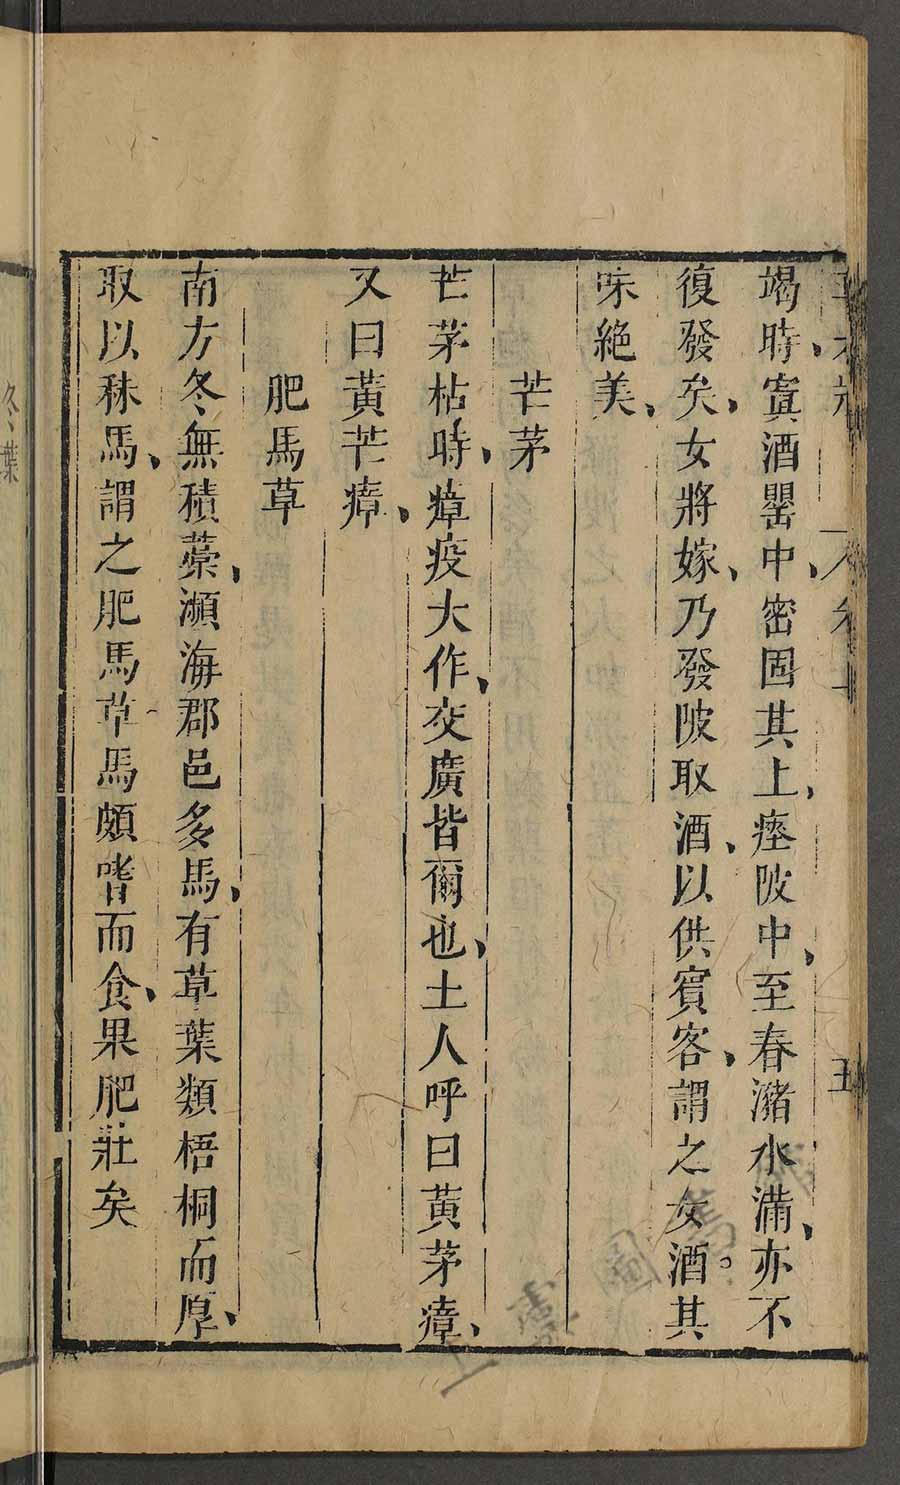 竭時、寘酒罌中、密固其上、瘞陂中、至春瀦水滿、亦不
復發矣、女將嫁、乃發陂取酒、以供賓客、謂之女酒。其
味絶美、
芒茅
芒茅枯時、瘴疫大作、交廣皆爾也、土人呼曰黃茅瘴、
又曰黃芒瘴、
肥馬草
南方冬無積藁、瀕海郡邑多馬、有草葉類梧桐而厚、
取以秣馬、謂之肥馬草馬頗嗜而食、果肥壯矣
冬葉
五